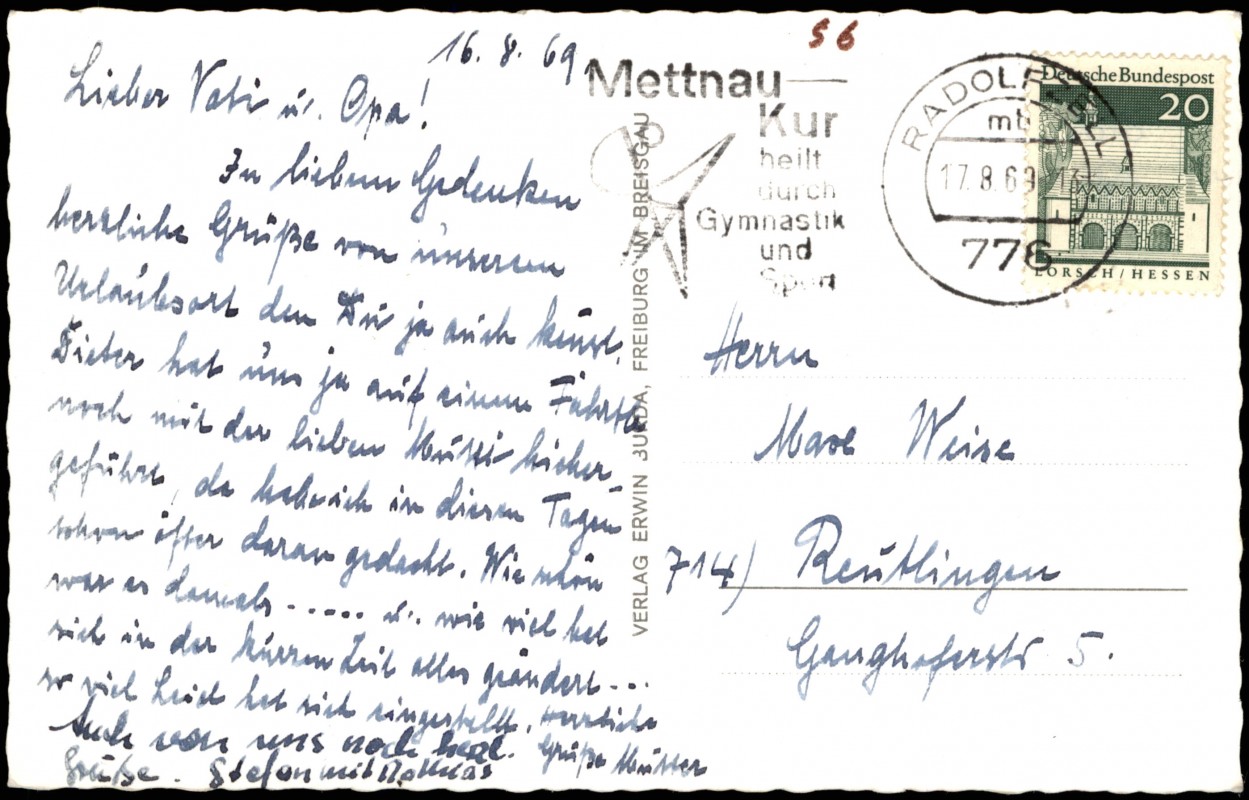 16. 8. 69
Lieber Vati u. Opa!
In liebem Gedenken
herzliche Grüße von unserem
Urlaubsort den Du ja auch kennst.
Dieter hat uns ja auf einem Fährtle
noch mit der lieben Mutti hieher-
geführt, da habe ich in diesen Tagen
schon öfter daran gedacht. Wie schön
war es damals ..... u. wie viel hat
sich in der kurzen Zeit alles geändert ...
so viel Leid hat sich eingestellt. Herzliche
Grüße Mutter
Auch von uns noch herzl.
Grüße. Stefan mit
VERLAG ERWIN BURDA, FREIBURG IM BREISGAU
56
Mettnau
Kur
heilt
durch
Gymnastik
und
Sport
RADOLFZELL
mb
17.8.69
776
Deutsche Bundespost
20
LORSCH/HESSEN
Herrn
Max Weise
714) Reutlingen
Ganghoferstr 5.